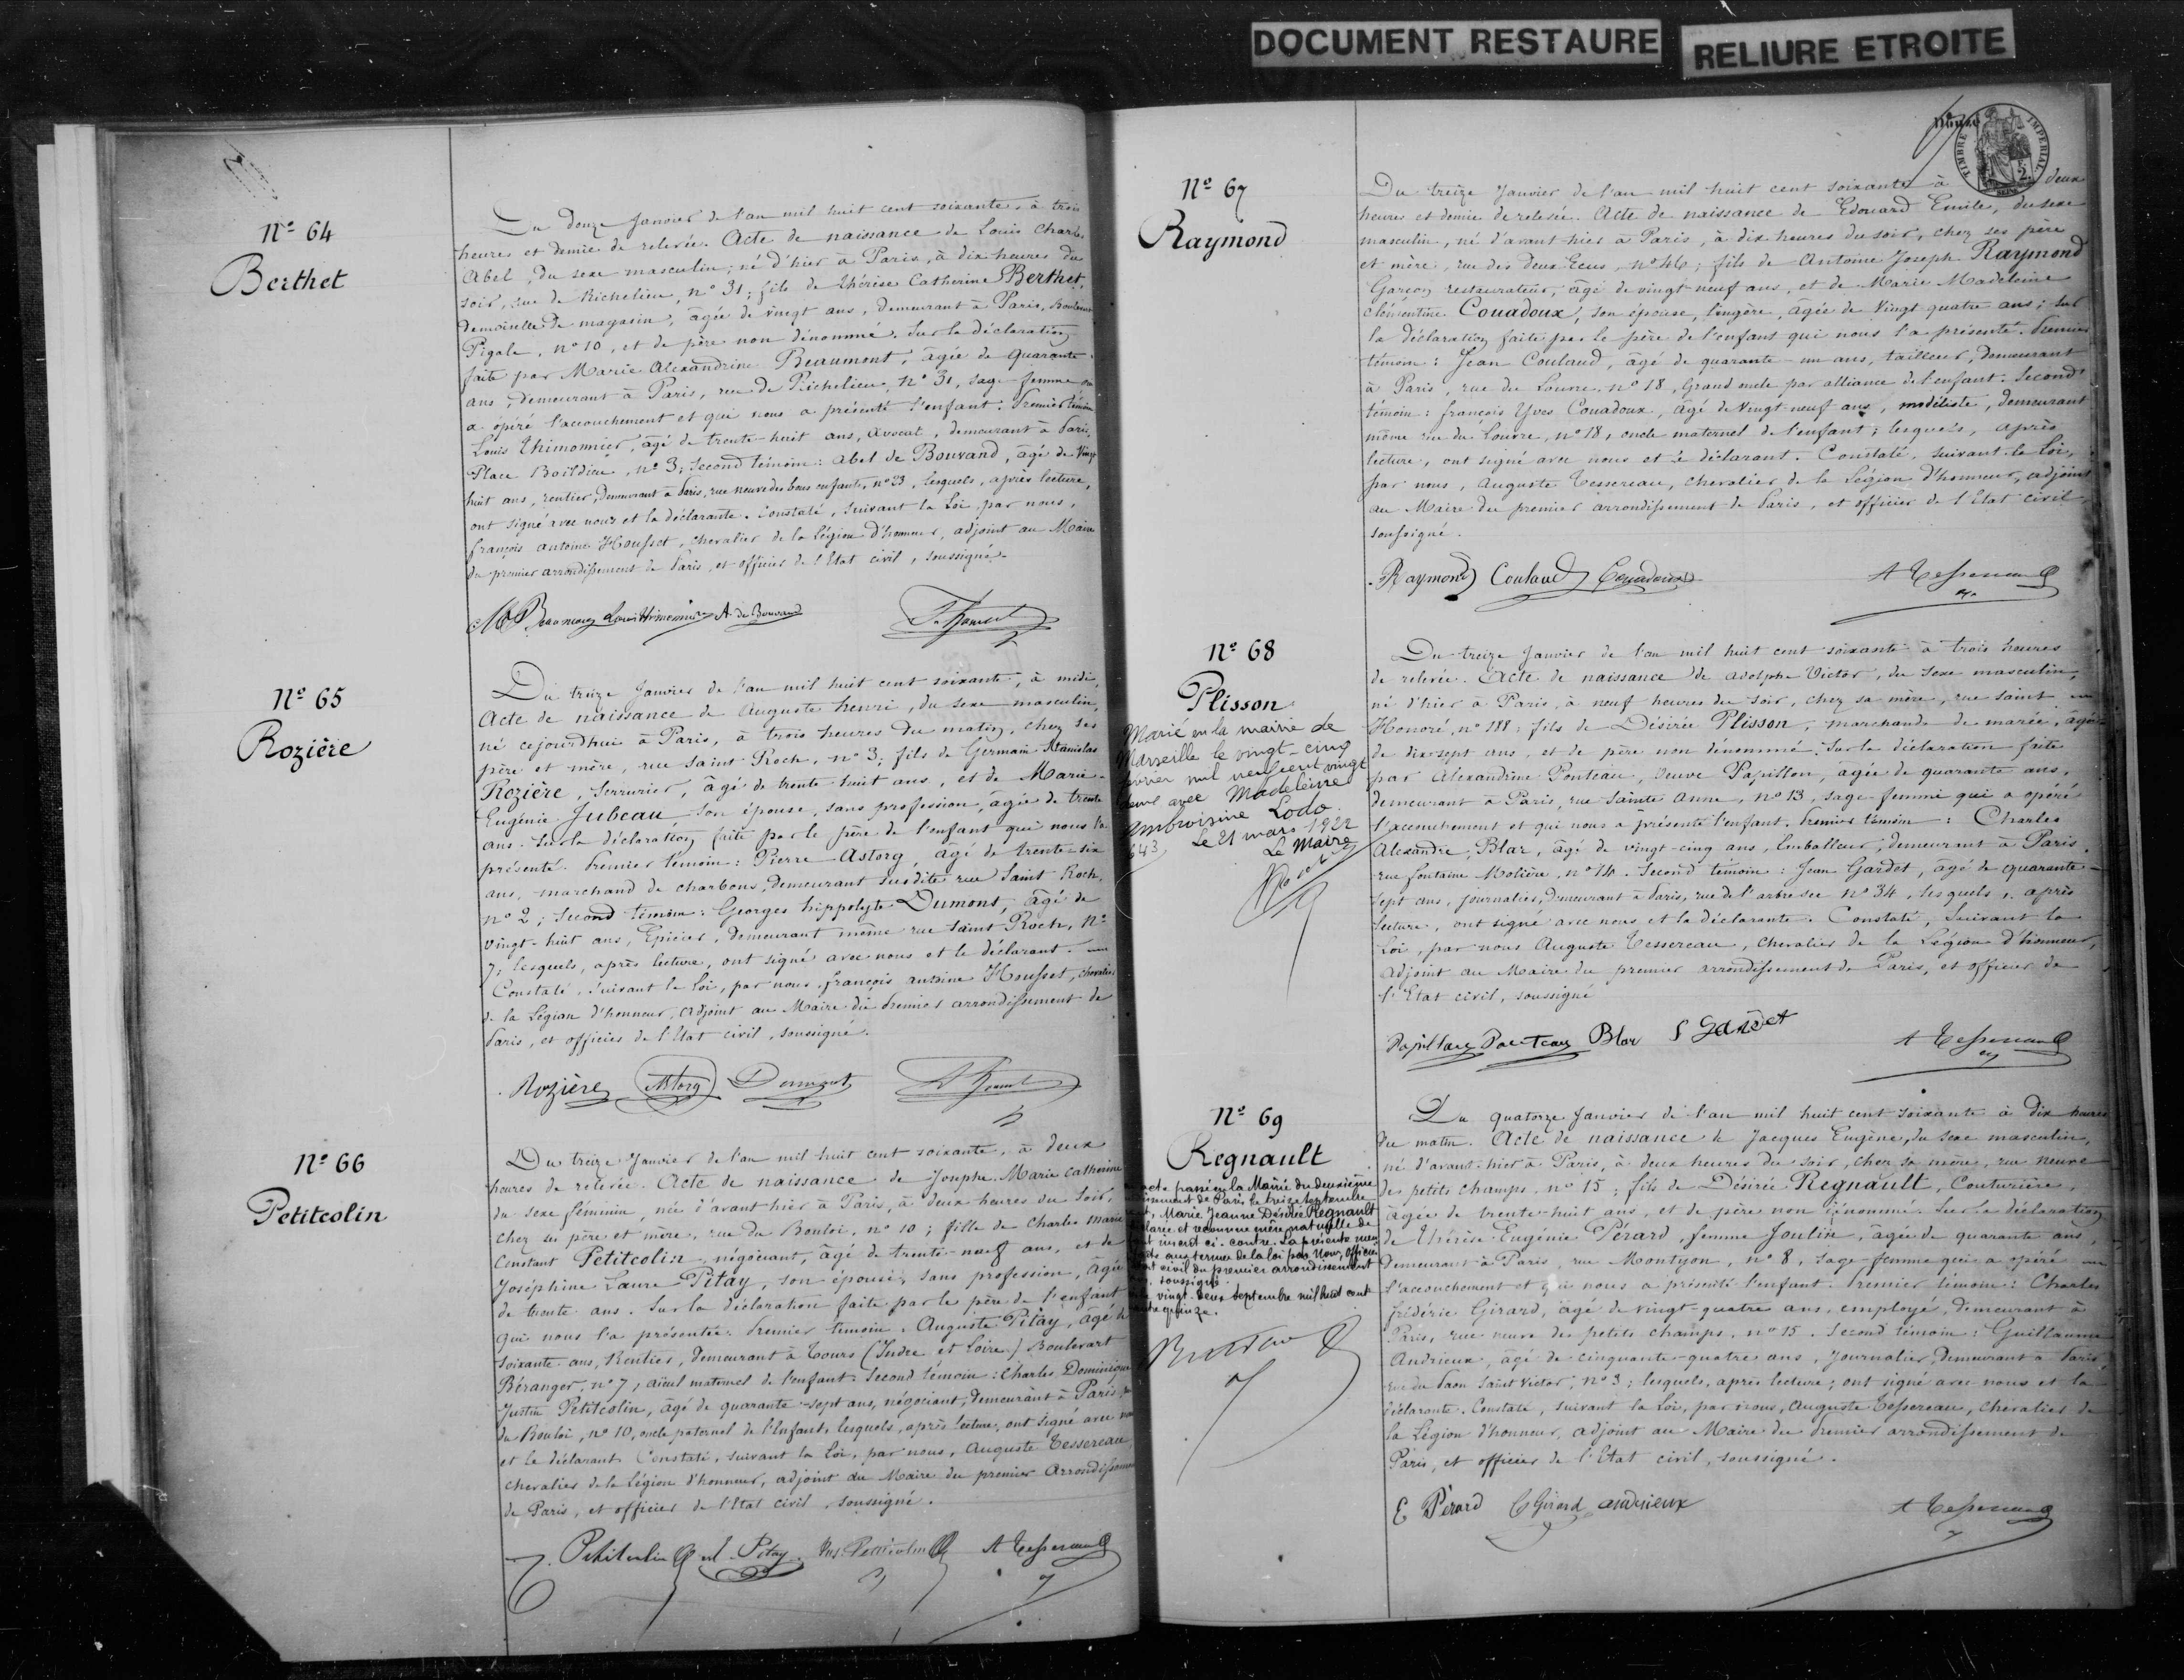 DOCUMENT RESTAURE
RELIURE ETROITE
Nº 64
Berthet
Du douze Janvier de l'an mil huit cent soixante, à trois
heures et demie de relevée. Acte de naissance de Louis Charles
Abel, du sexe masculin, né d'hier à Paris, à dix heures du
soir, rue de Richelieu, nº 31; fils de Thérèse Catherine Berthet,
demoiselle de magasin, âgée de vingt ans, demeurant à Paris, Boulevart
Pigale, nº 10, et de père non dénommé. Sur la déclaration
faite par Marie Alexandrine Beaumont, âgée de quarante
ans, demeurant à Paris, rue de Richelieu, nº 31, sage-femme qui
a opéré l'accouchement et qui nous a présenté l'enfant. Premier témoin
Louis Thimonnier, âgé de trente-huit ans, avocat, demeurant à Paris,
Place Boïldieu, nº 3; Second témoin: Abel de Bouvand, âgé de Vingt
huit ans, rentier, demeurant à Paris, rue neuve des bons enfants, nº 23, lesquels, après lecture,
ont signé avec nous et la déclarante. Constaté, suivant la Loi, par nous,
françois antoine Housset, chevalier de la Légion d'honneur, adjoint au Maire
du premier arrondissement de Paris, et officier de l'Etat civil, soussigné.
Louis Thimonnier A. de Bouvand
Nº 65
Rozière
Du treize Janvier de l'an mil huit cent soixante, à midi,
Acte de naissance de Auguste henri, du sexe masculin,
né cejourd'hui à Paris, à trois heures du matin, chez ses
père et mère, rue Saint Roch, nº 3; fils de Germain Stanislas
Rozière, Serrurier, âgé de trente-huit ans, et de Marie-
Eugénie Jubeau, son épouse, sans profession, âgée de trente
ans. Sur la déclaration faite par le père de l'enfant qui nous l'a
présenté. Premier témoin: Pierre Astorg, âgé de trente-six
ans, marchand de charbons, demeurant susdite rue Saint Roch,
nº 2; Second témoin: Georges hippolyte Dumont, âgé de
vingt-huit ans, Epicier, demeurant même rue Saint Roch, Nº
7; lesquels, après lecture, ont signé avec nous et le déclarant.
Constaté, suivant la Loi, par nous, françois antoine Housset, chevalier
de la Légion d'honneur, adjoint au Maire du Premier arrondissement de
Paris, et officier de l'Etat civil, soussigné.
Rozière Astorg Dumont
Nº 66
Petitcolin
Du treize Janvier de l'an mil huit cent soixante, à deux
heures de relevée. Acte de naissance de Josephe Marie Catherine
du sexe féminin, née d'avant hier à Paris, à deux heures du Soir,
chez ses père et mère, rue du Bouloi, nº 10; fille de Charles Marie
Constant Petitcolin, négociant, âgé de trente-neuf ans, et de
Joséphine Laure Pitay, son épouse, sans profession, âgée
de trente ans. Sur la déclaration faite par le père de l'enfant
qui nous l'a présentée. Premier témoin: Auguste Pitay, âgé de
soixante ans, Rentier, demeurant à Tours (Indre et Loire) Boulevart
Béranger, nº 7, aïeul maternel de l'enfant. Second témoin: Charles Dominique
Justin Petitcolin, âgé de quarante-sept ans, négociant, demeurant à Paris,
du Bouloi, nº 10, oncle paternel de l'Enfant, lesquels, après lecture, ont signé avec nous
et le déclarant. Constaté, suivant la Loi, par nous, Auguste Tessereau,
chevalier de la Légion d'honneur, adjoint au Maire du premier Arrondissement
de Paris, et officier de l'Etat civil, soussigné.
Petitcolin Pitay Petitcolin A Tessereau
TIMBRE IMPERIAL
Nº 67
Raymond
Du treize Janvier de l'an mil huit cent soixante à deux
heures et demie de relevée. Acte de naissance de Edouard Emile, du sexe
masculin, né d'avant hier à Paris, à dix heures du soir, chez ses père
et mère, rue des Deux Ecus, nº 46; fils de Antoine Joseph Raymond
Garçon restaurateur, âgé de vingt-neuf ans, et de Marie Madeleine
Clémentine Couadoux, son épouse, lingère, âgée de Vingt quatre ans; sur
la déclaration faite par le père de l'enfant qui nous l'a présenté. Premier
témoin: Jean Coulaud, âgé de quarante-un ans, tailleur, demeurant
à Paris, rue du Louvre, nº 18, Grand oncle par alliance de l'enfant. Second
témoin: françois Yves Couadoux, âgé de Vingt-neuf ans, modéliste, demeurant
même rue du Louvre, nº 18, oncle maternel de l'enfant; lesquels, après
lecture, ont signé avec nous et le déclarant. Constaté, suivant la Loi,
par nous, Auguste Tessereau, chevalier de la Légion d'honneur, adjoint
au Maire du premier arrondissement de Paris, et officier de l'Etat civil,
soussigné.
Raymond Coulaud Couadoux A Tessereau
Nº 68
Plisson
Marié en la mairie de
Marseille le vingt-cinq
février mil neuf cent vingt
deux avec Madeleine
Ambroisine Lodo.
Le 21 mars 1922
643
Le Maire
Du treize Janvier de l'an mil huit cent soixante à trois heures
de relevée. Acte de naissance de Adolphe Victor, du Sexe masculin,
né d'hier à Paris, à neuf heures du Soir, chez sa mère, rue Saint
Honoré, nº 188; fils de Désirée Plisson, marchande de marée, âgée
de dix sept ans, et de père non dénommé. Sur la déclaration faite
par Alexandrine Ponteau, Veuve Papillon, âgée de quarante ans,
demeurant à Paris, rue Sainte Anne, nº 13, sage-femme qui a opéré
l'accouchement et qui nous a présenté l'enfant. Premier témoin: Charles
Alexandre Blar, âgé de vingt-cinq ans, Emballeur, demeurant à Paris,
rue fontaine Molière, nº 14. Second témoin: Jean Gardet, âgé de quarante-
Sept ans, journalier, demeurant à Paris, rue de l'arbre sec nº 34, lesquels, après
Lecture, ont signé avec nous et la déclarante. Constaté, Suivant la
Loi, par nous Auguste Tessereau, chevalier de la Légion d'honneur,
adjoint au Maire du premier arrondissement de Paris, et officier de
l'Etat civil, soussigné
Blar Gardet A Tessereau
Nº 69
Regnault
acte passé en la Mairie du deuxième
de Paris, le treize septembre
Marie Jeanne Désirée Regnault
déclarée et reconnue mère naturelle de
inscrit ci-contre. La présente
aux termes de la loi par Nous, Officier
civil du premier arrondissement
soussigné.
vingt-deux septembre mil huit cent
quinze.
Du quatorze Janvier de l'an mil huit cent soixante à dix heures
du matin. Acte de naissance de Jacques Eugène, du sexe masculin,
né d'avant-hier à Paris, à deux heures du soir, chez sa mère, rue neuve
des petits champs, nº 15; fils de Désirée Regnault, Couturière,
âgée de trente-huit ans, et de père non dénommé. Sur la déclaration
de Thérèse Eugénie Pérard, femme Joulin, âgée de quarante ans,
demeurant à Paris, rue Montyon, nº 8, sage-femme qui a opéré
l'accouchement et qui nous a présenté l'enfant. Premier témoin: Charles
frédéric Girard, âgé de vingt-quatre ans, employé, demeurant à
Paris, rue neuve des petits champs, nº 15. Second témoin: Guillaume
Andrieux, âgé de cinquante-quatre ans, Journalier, demeurant à Paris,
rue du Paon Saint Victor, nº 3; lesquels, après lecture, ont signé avec nous et la
déclarante. Constaté, suivant la Loi, par nous, Auguste Tessereau, chevalier de
la Légion d'honneur, adjoint au Maire du Premier arrondissement de
Paris, et officier de l'Etat civil, soussigné.
E Pérard Girard andrieux A Tessereau